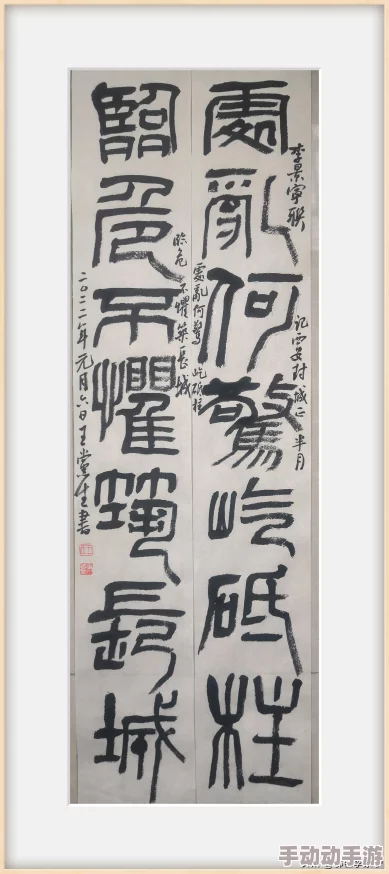 李景寧聯
處亂何驚屹砥柱
記西安封城正半月
處亂何驚屹砥柱
臨危不懼築長城
臨危不懼築長城
二〇二二年元月六日王黨生書
手动动手游